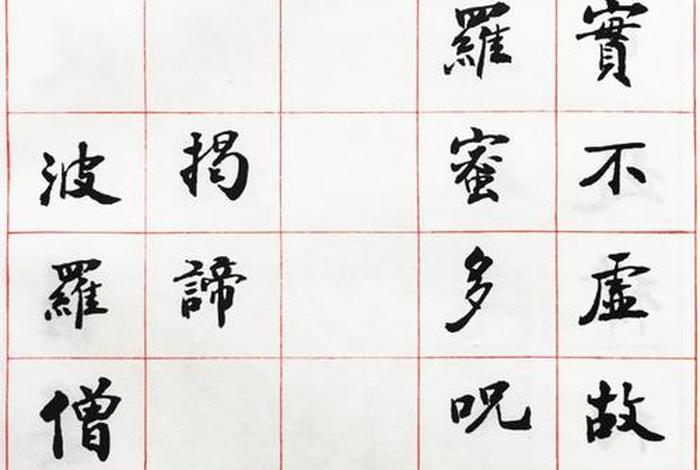 實不虛故
羅蜜多呪
揭諦
波羅僧